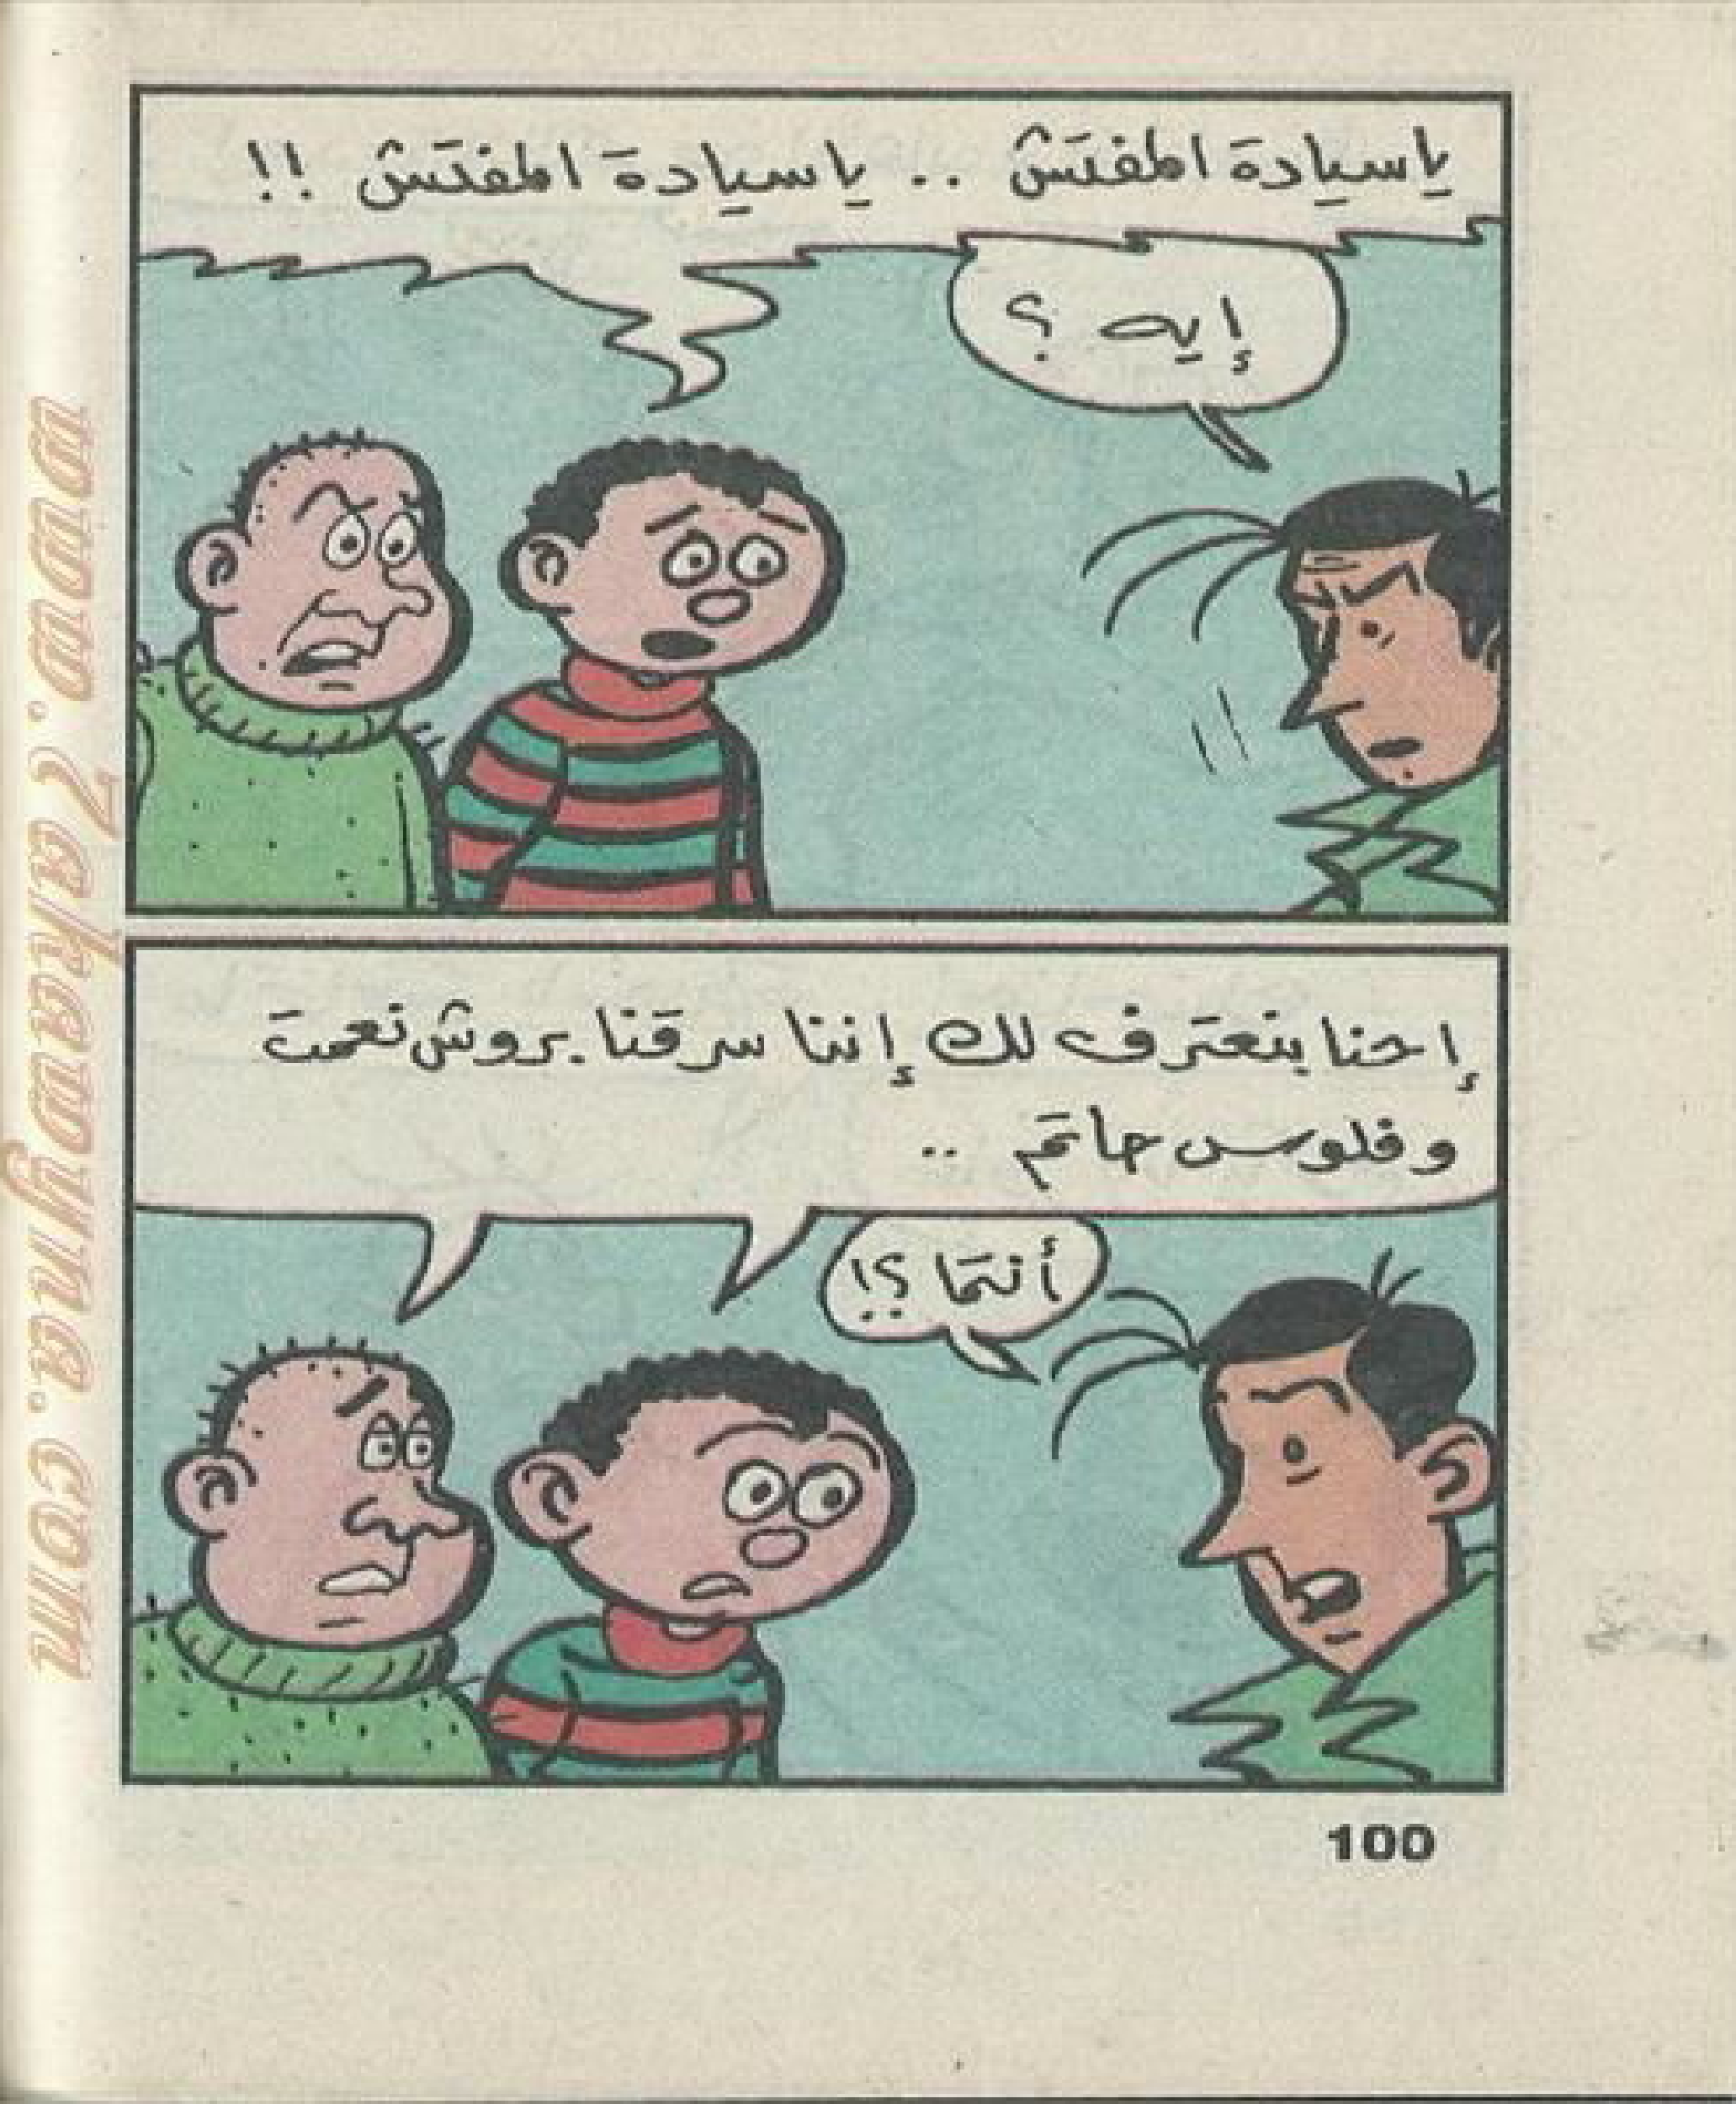 ياسيادة المفتش .. ياسيادة المفتش !!
إيه ؟
إحنا بنعترف لك إننا سرقنا بروش نعمت
وفلوس حاتم ..
أنتما ؟!
100
www.Zahawyina.com